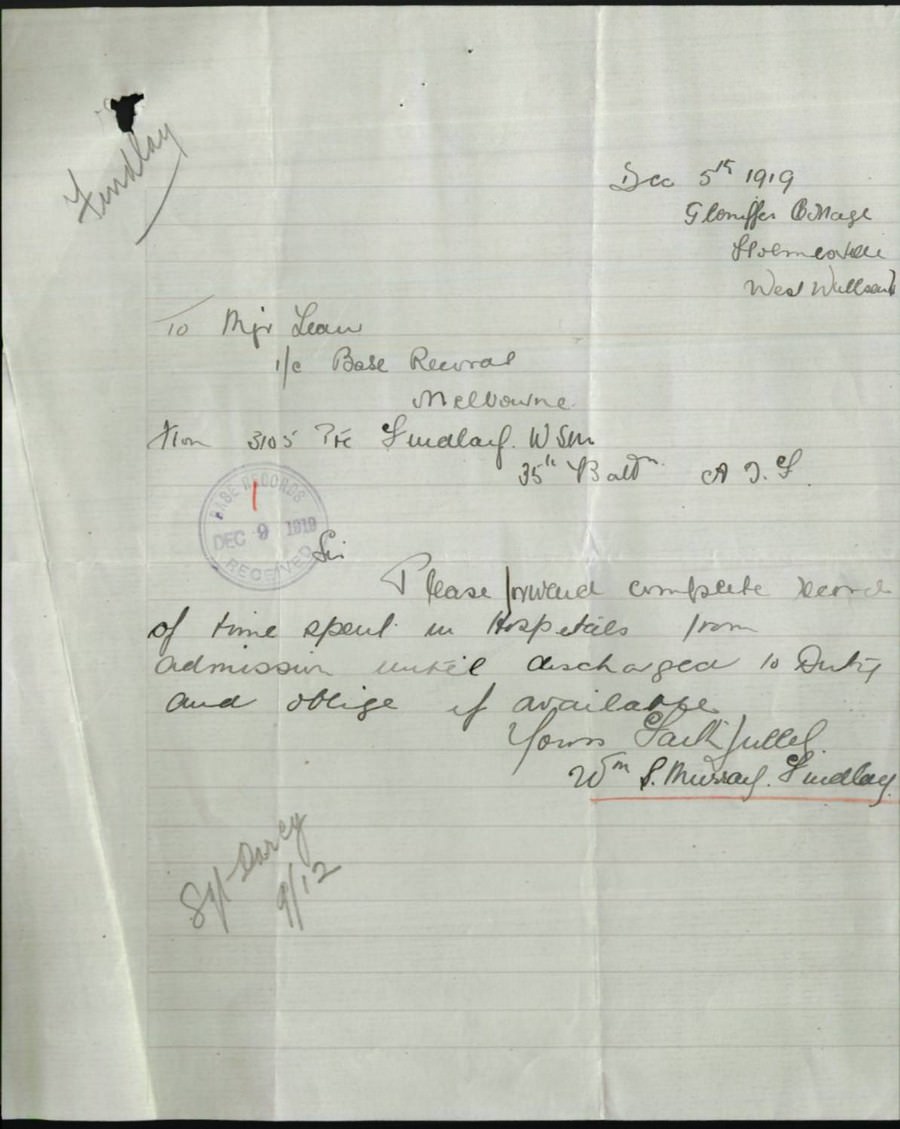 Findlay
Dec 5th 1919
Gleniffer Cottage
Holmesville
West Wallsend
To Mjr Lean
i/c Base Records
Melbourne
From 3105 Pte Findlay. W S M
35th Battn A I F
BASE RECORDS
1
DEC 9 1919
RECEIVED
Sir
Please forward complete record
of time spent in Hospitals from
admission until discharged to Duty
and oblige if available
Yours Faithfully
Wm S. Murray. Findlay.
Sgt Darcy
9/12